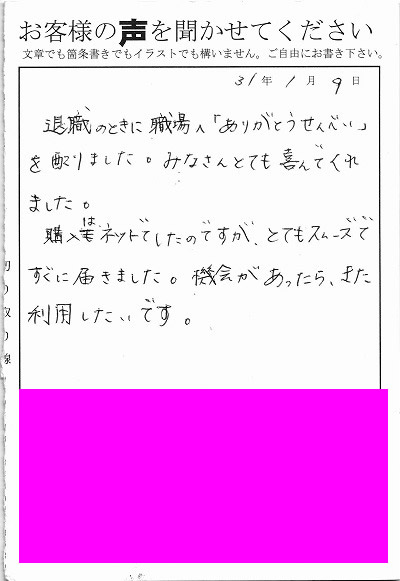 お客様の声を聞かせてください
文章でも箇条書きでもイラストでも構いません。ご自由にお書き下さい。
31年 1月 9日
退職のときに職場へ「ありがとうせんべい」
を配りました。みなさんとても喜んでくれ
ました。
購入はネットでしたのですが、とてもスムーズで
すぐに届きました。機会があったら、また
利用したいです。
切り取り線